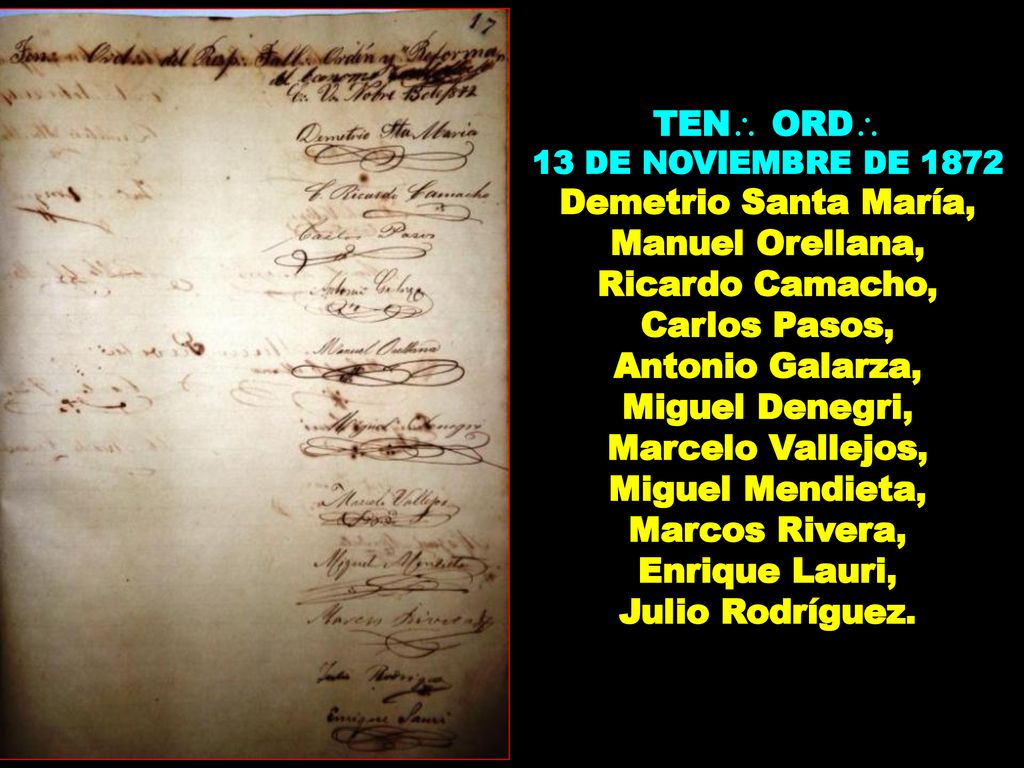 17
Ten∴ Ord∴ del Resp∴ Tall∴ Orden y Reforma
C∴ V∴ Nobre 13 de 1872
Demetrio Sta María
C. Ricardo Camacho
Carlos Pasos
Antonio Galarza
Manuel Orellana
Miguel Denegri
Marcelo Vallejos
Miguel Mendieta
Marcos Rivera
Julio Rodríguez
Enrique Lauri
TEN∴ ORD∴
13 DE NOVIEMBRE DE 1872
Demetrio Santa María,
Manuel Orellana,
Ricardo Camacho,
Carlos Pasos,
Antonio Galarza,
Miguel Denegri,
Marcelo Vallejos,
Miguel Mendieta,
Marcos Rivera,
Enrique Lauri,
Julio Rodríguez.